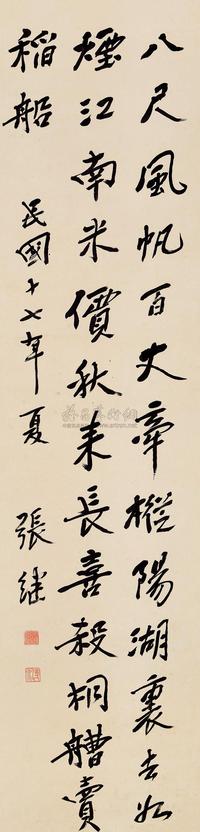 八尺風帆百丈牽樅陽湖裏去如
煙江南米價秋来長喜殺桐艚賣
稻船 民國十七年夏 張継